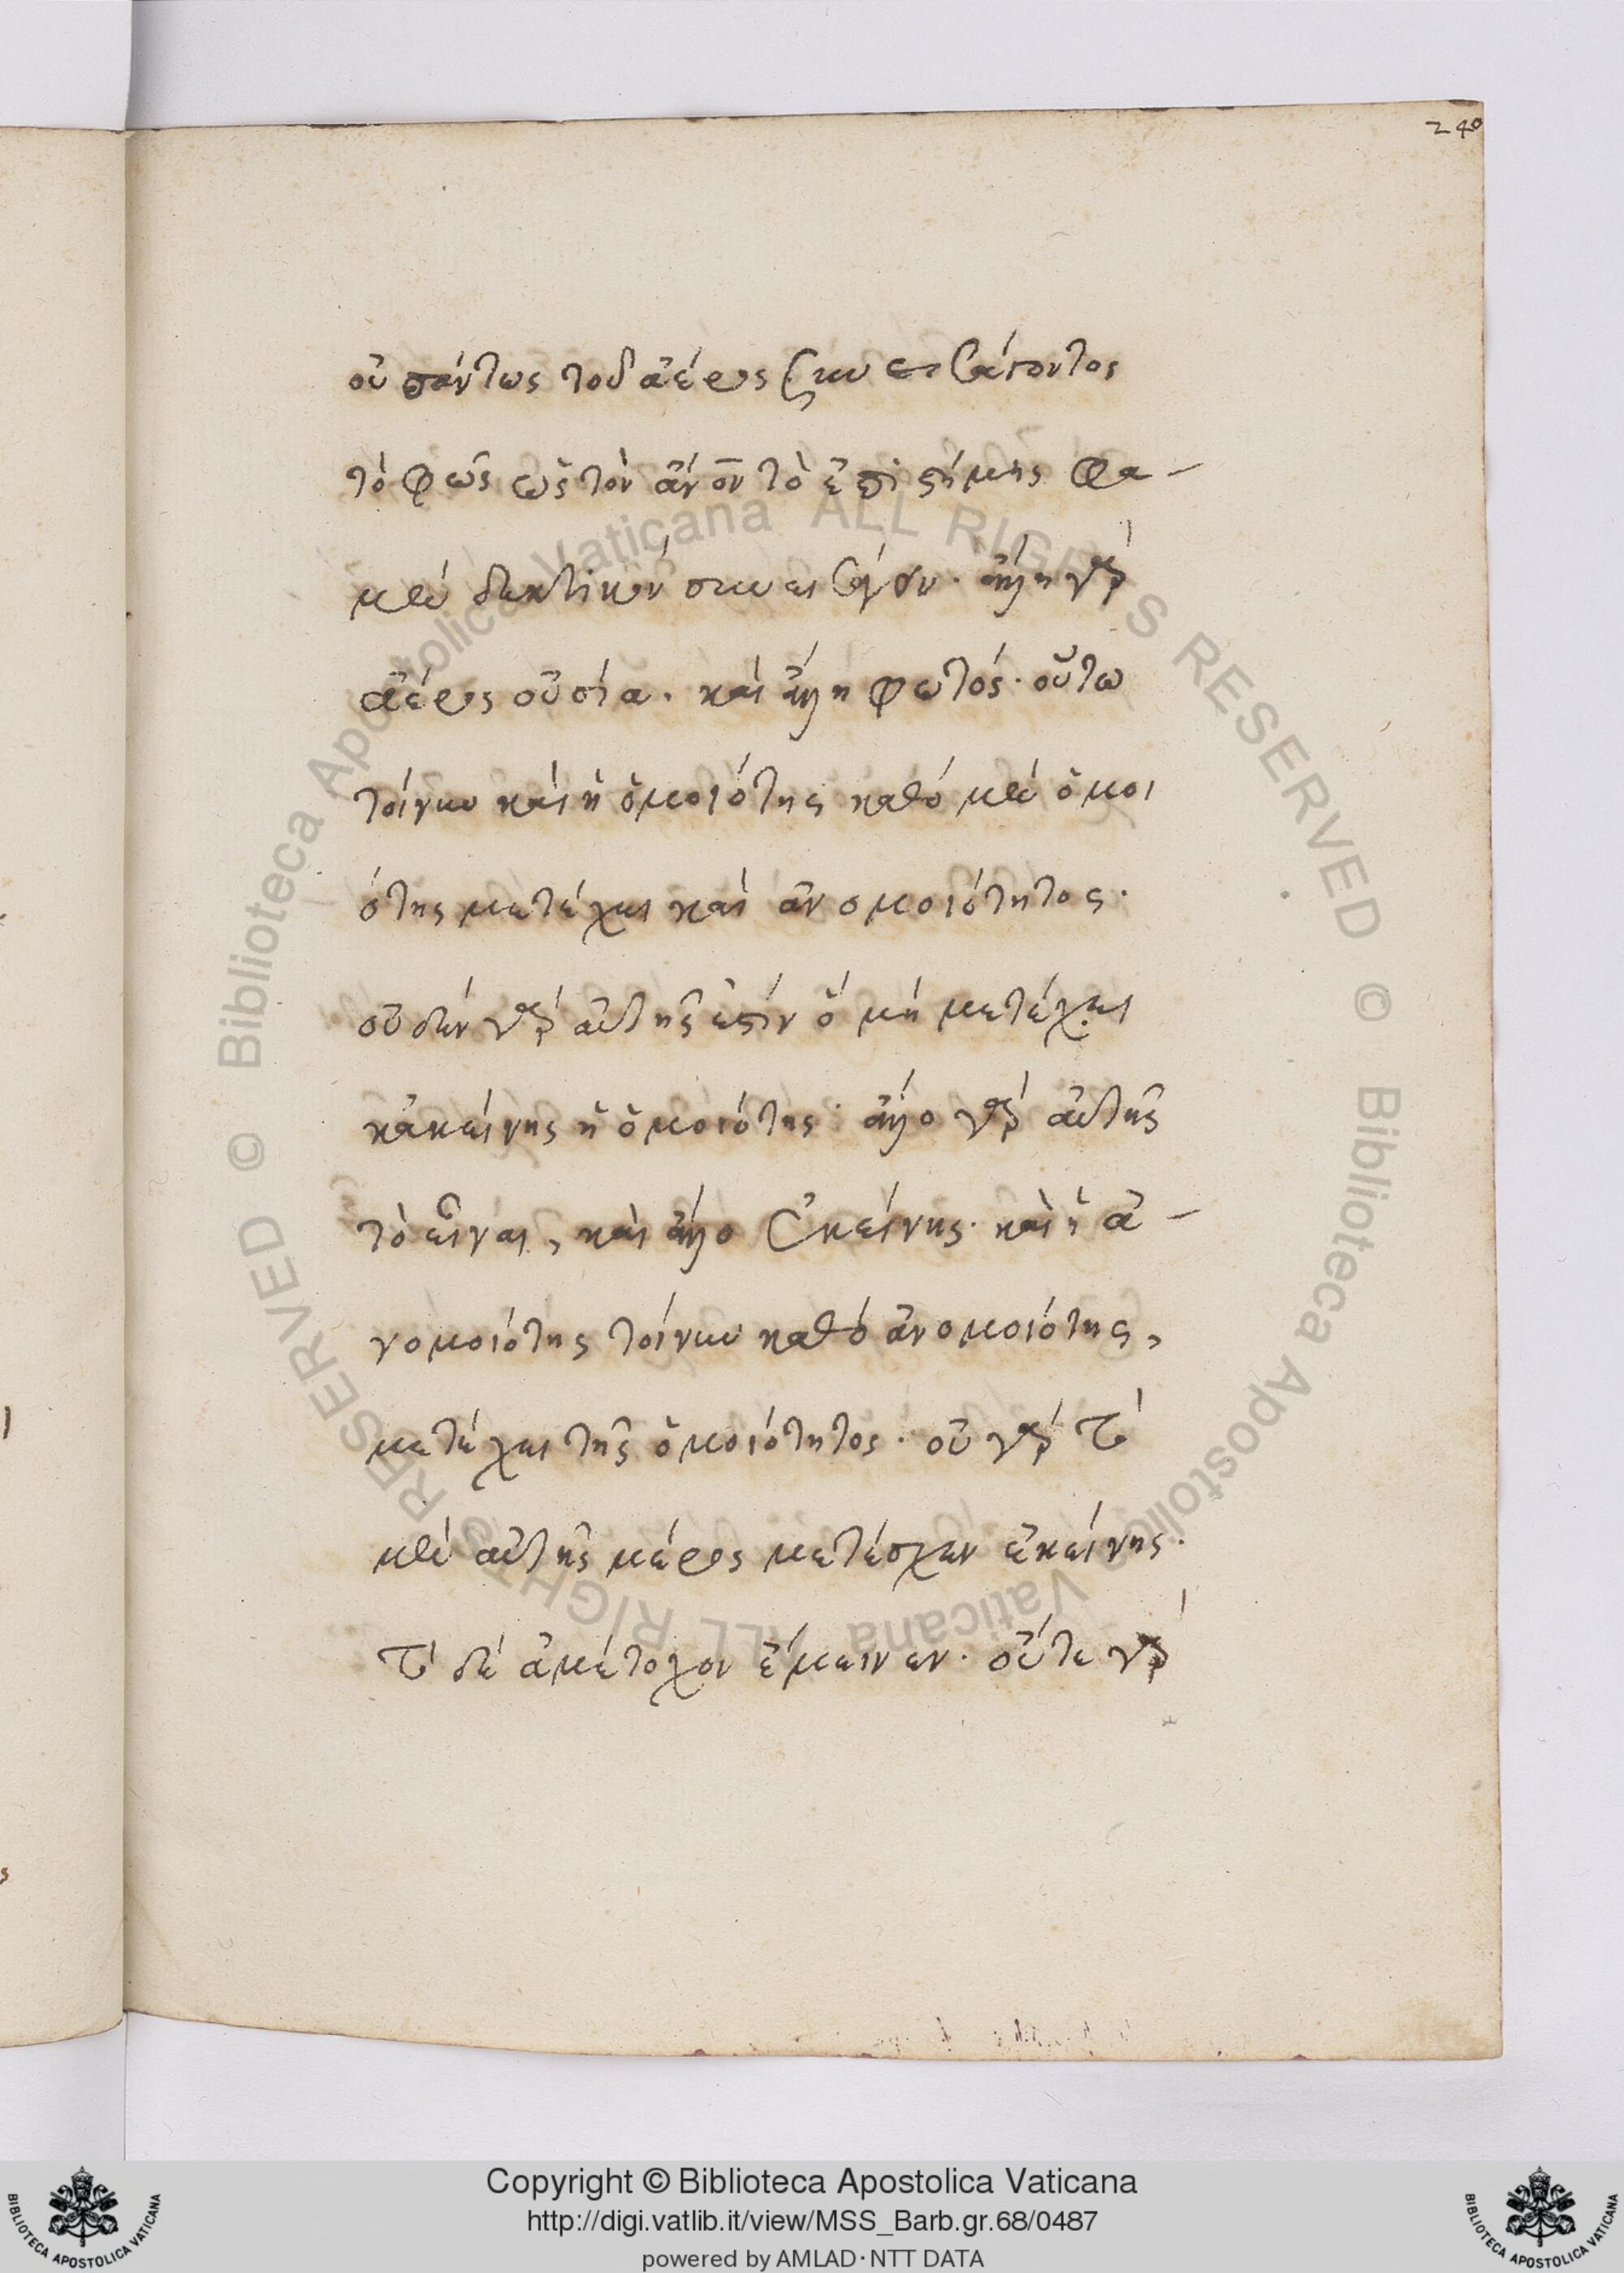 240
οὐ πάντως τοῦ ἀέρος συνεισβάλλοντος
τὸ φῶς ὡς τὸν ἀνον τὸ ἐπιστήμης φα-
μὲν δεκτικὸν συνεισάγειν· ἄλλη γὰρ
ἀέρος οὐσία. καὶ ἄλλη φωτός· οὕτω
τοίνυν καὶ ἡ ὁμοιότης καθό μὲν ὁμοι
ότης μετέχει καὶ ἀνομοιότητος·
οὐδὲν γὰρ αὐτῆς ἐστὶν ὃ μὴ μετέχει
κἀκείνης ἡ ὁμοιότης· ἄλλο γὰρ αὐτῆς
τὸ εἶναι, καὶ ἄλλο ἐκείνης· καὶ ἡ ἀ-
νομοιότης τοίνυν καθό ἀνομοιότης,
μετέχει τῆς ὁμοιότητος· οὐ γὰρ τὸ
μὲν αὐτῆς μέρος μετέσχεν ἐκείνης·
τὸ δὲ ἀμέτοχον ἔμεινεν· οὔτε γὰρ
Copyright © Biblioteca Apostolica Vaticana
http://digi.vatlib.it/view/MSS_Barb.gr.68/0487
powered by AMLAD·NTT DATA
BIBLIOTECA APOSTOLICA VATICANA
BIBLIOTECA APOSTOLICA VATICANA
© Biblioteca Apostolica Vaticana ALL RIGHTS RESERVED © Biblioteca Apostolica Vaticana ALL RIGHTS RESERVED